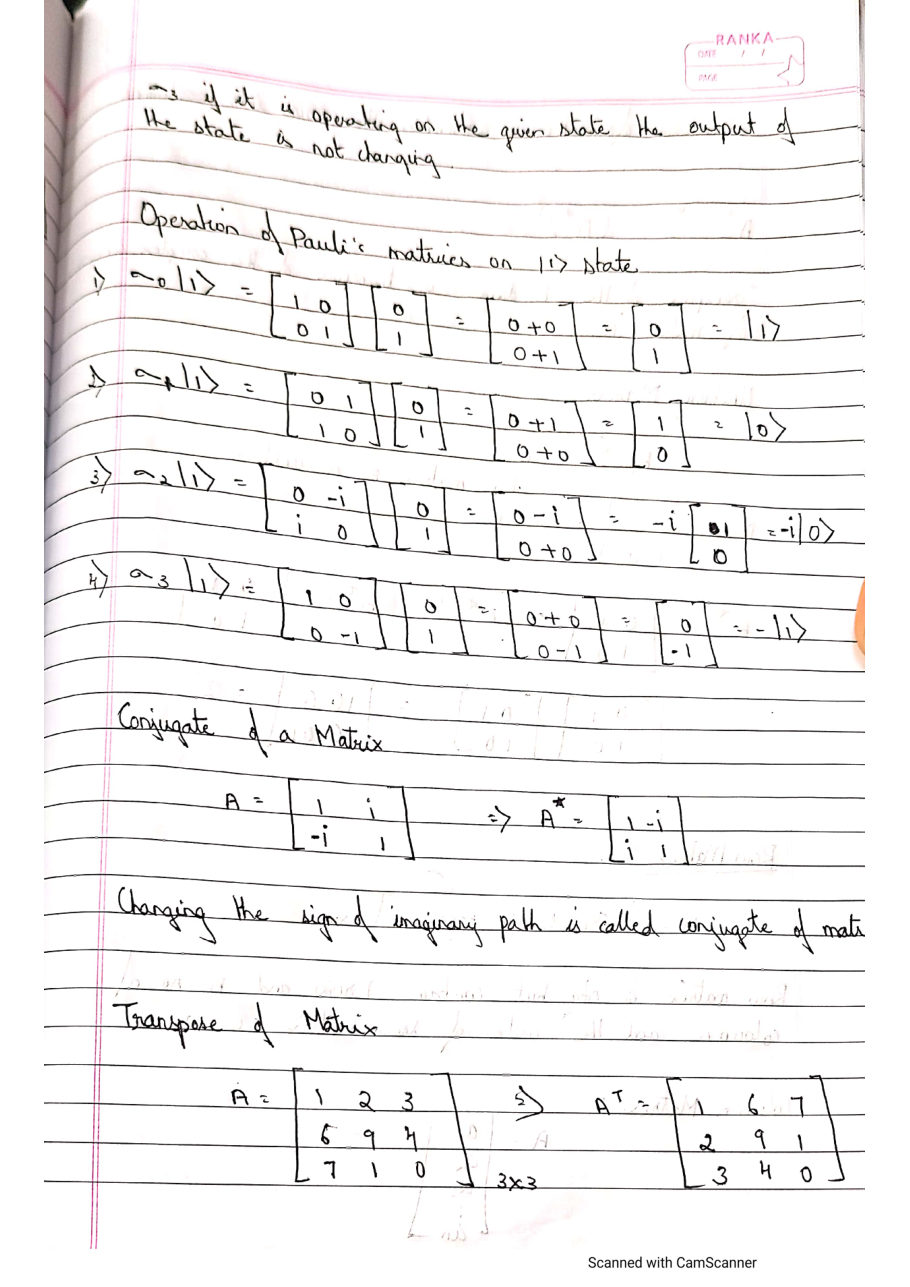 RANKA
DATE / /
PAGE
σ3 if it is operating on the given state the output of
the state is not changing
Operation of Pauli's matrices on |1> state
1) σ0|1> = [1 0; 0 1] [0; 1] = [0+0; 0+1] = [0; 1] = |1>
2) σ1|1> = [0 1; 1 0] [0; 1] = [0+1; 0+0] = [1; 0] = |0>
3) σ2|1> = [0 -i; i 0] [0; 1] = [0-i; 0+0] = -i [1; 0] = -i|0>
4) σ3|1> = [1 0; 0 -1] [0; 1] = [0+0; 0-1] = [0; -1] = -|1>
Conjugate of a Matrix
A = [1 i; -i 1] => A* = [1 -i; i 1]
Changing the sign of imaginary path is called conjugate of mati
Transpose of Matrix
A = [1 2 3; 6 9 4; 7 1 0] 3x3 => A^T = [1 6 7; 2 9 1; 3 4 0]
Scanned with CamScanner